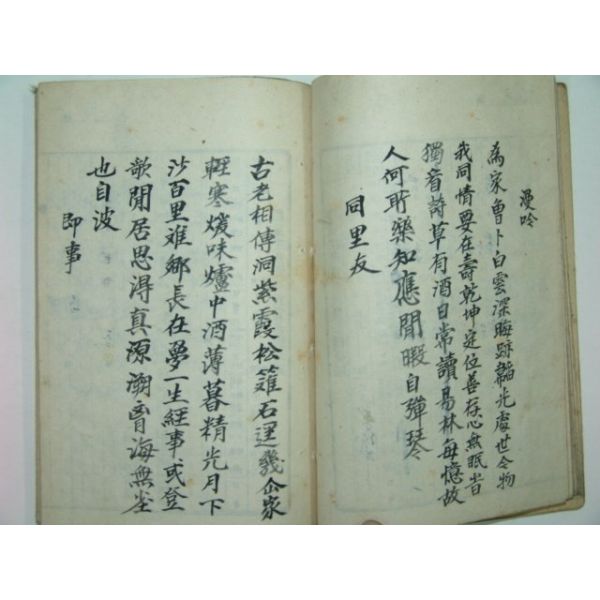 漫吟
為家曾卜白雲深晦跡韜光處世今物
我同情要在壽乾坤定位善存心無眠省
獨看詩草有酒日常讀易林每憶故
人何所樂知應閒暇自彈琴
同里友
古老相傳洞紫霞松篁石逕幾仚家
輕寒煖味爐中酒薄暮精光月下
沙百里難鄉長在夢一生経事或登
歌閒居思浔真源溯晉海無坐
也自波
即事